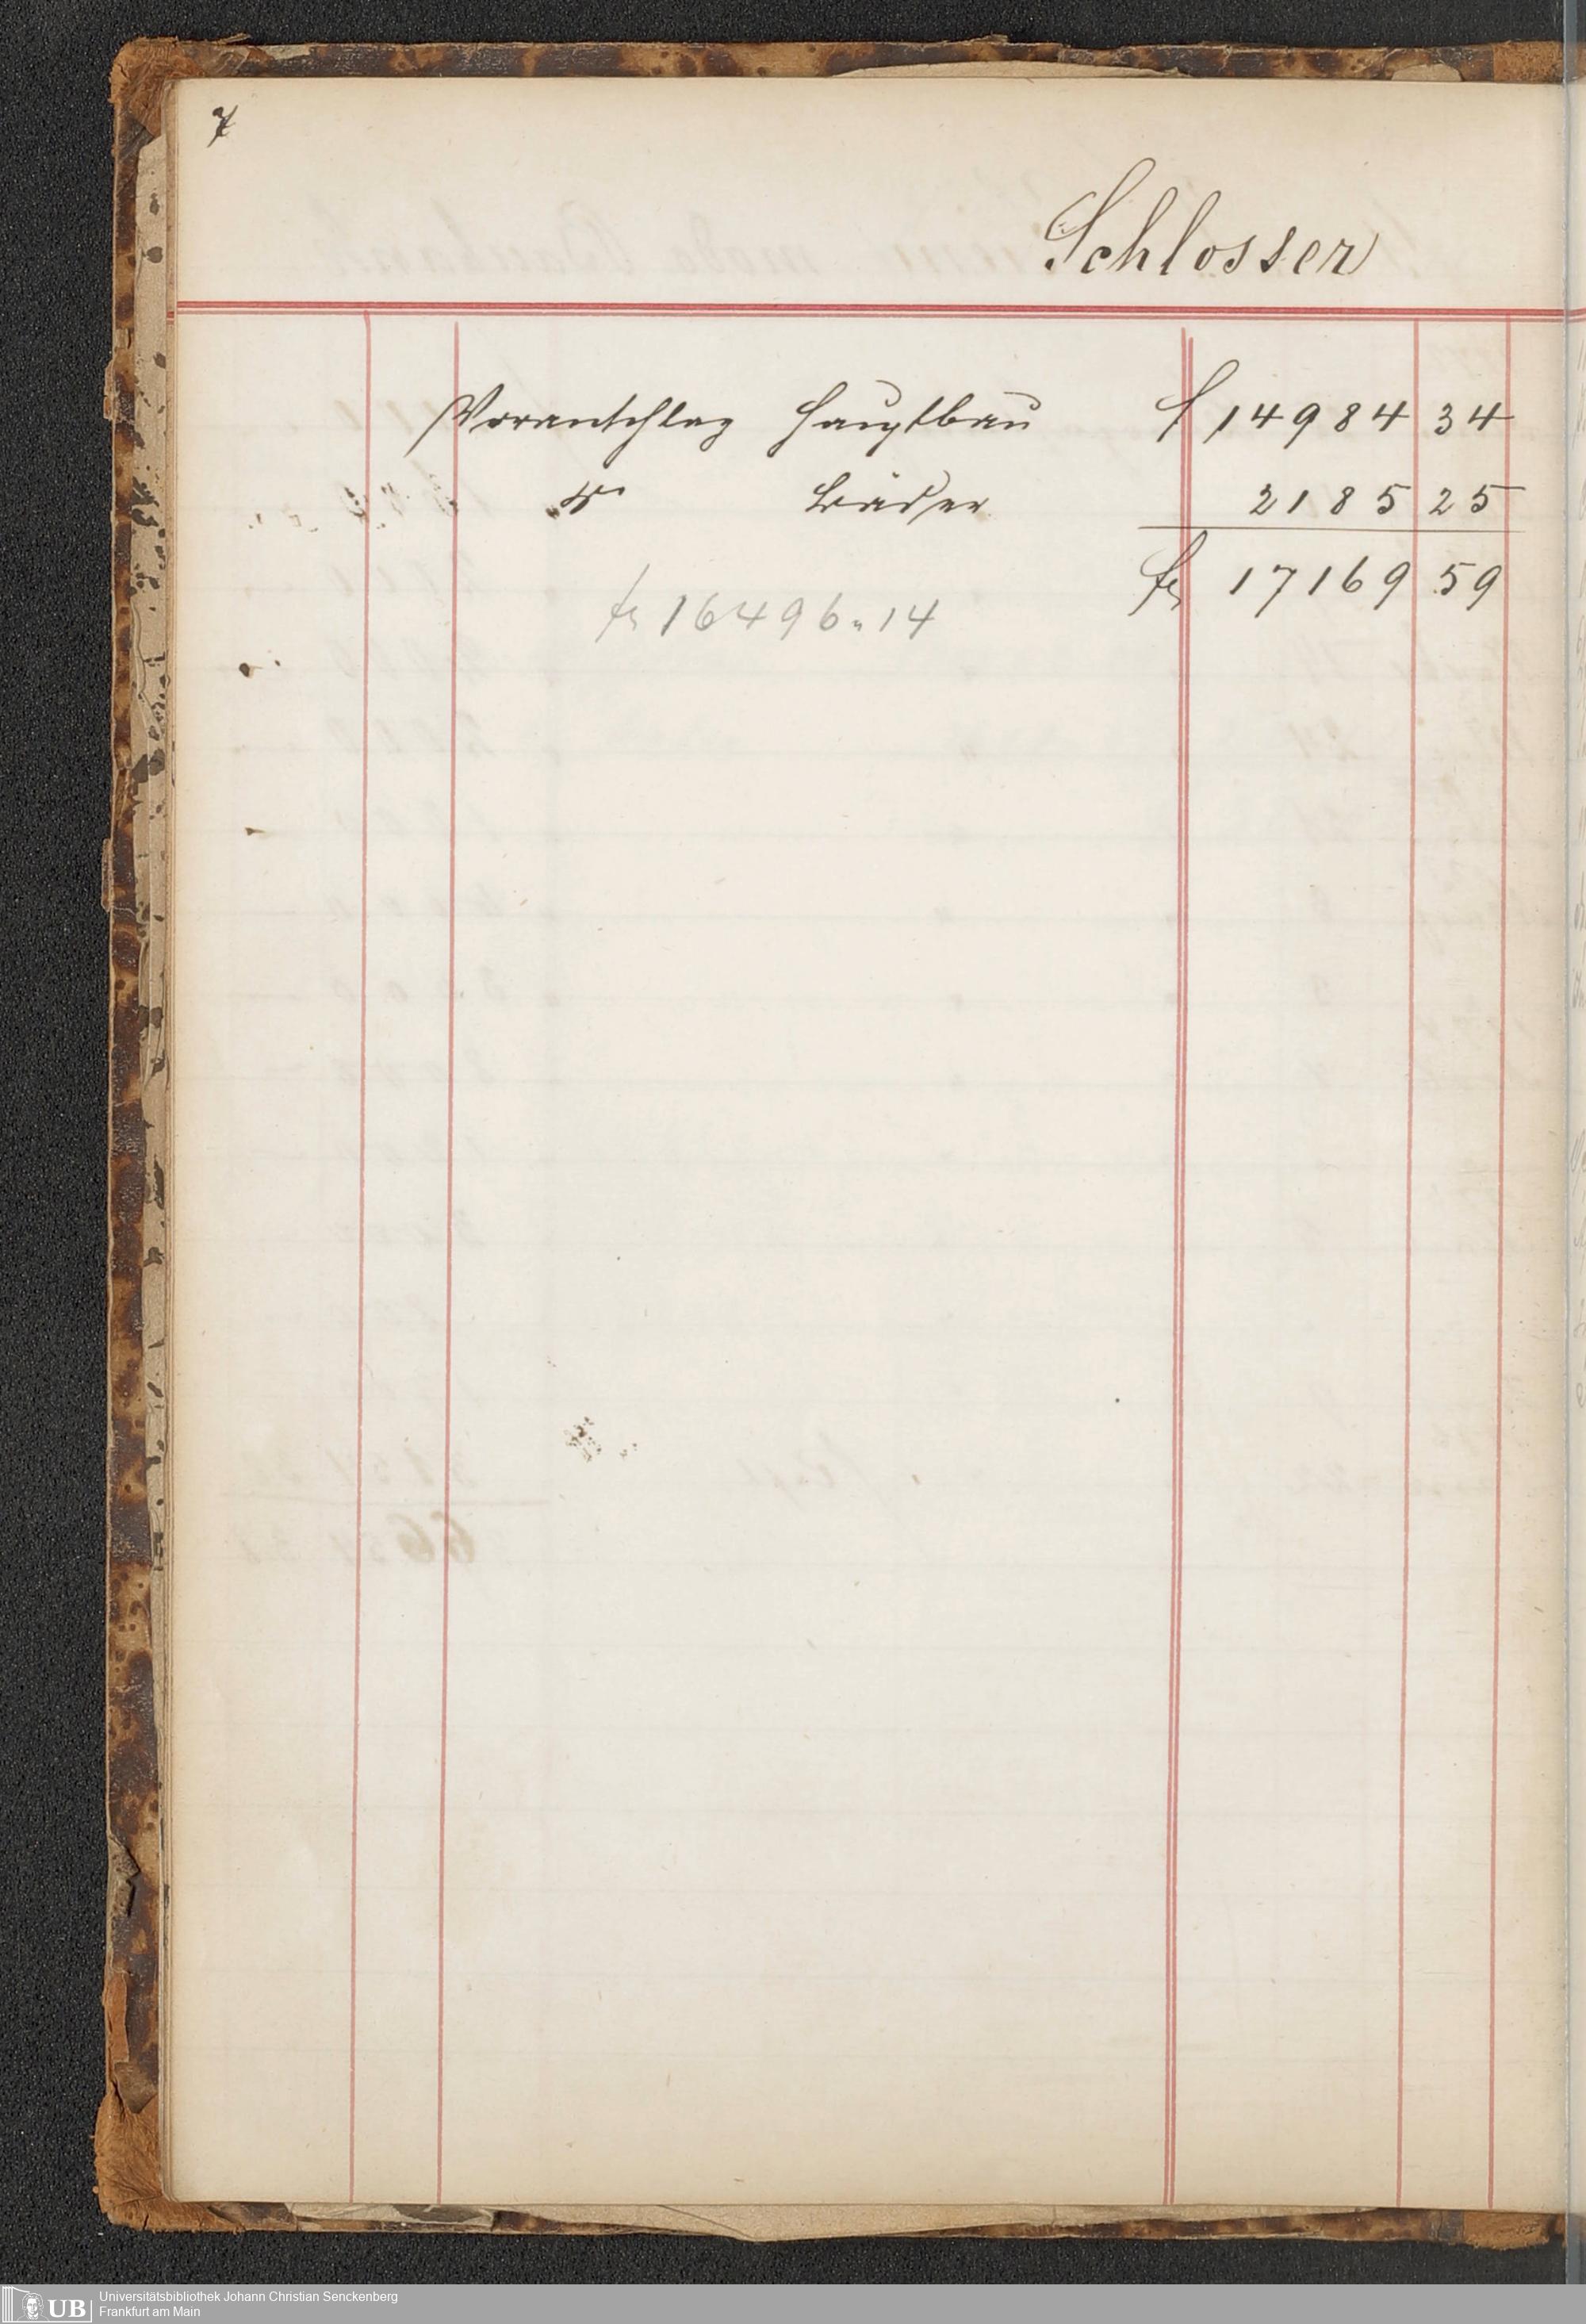 7
Schlosser
Voranschlag Hauptbau f 14984 34
do Bäder 2185 25
fs 17169 59
fs 16496 " 14
UB
Universitätsbibliothek Johann Christian Senckenberg
Frankfurt am Main